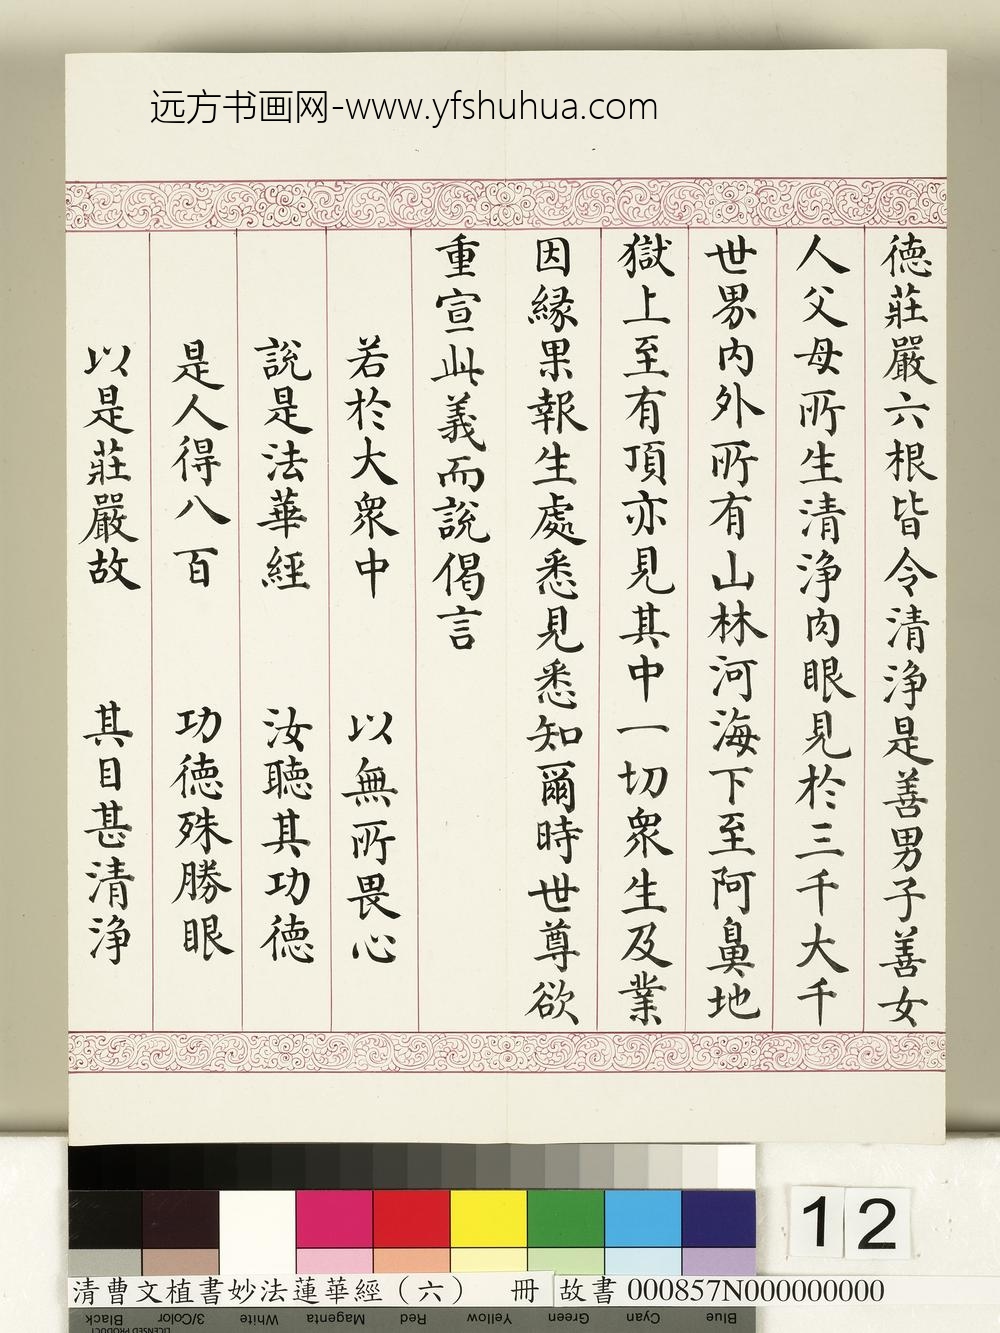 远方书画网-www.yfshuhua.com
德莊嚴六根皆令清淨是善男子善女
人父母所生清淨肉眼見於三千大千
世界內外所有山林河海下至阿鼻地
獄上至有頂亦見其中一切眾生及業
因緣果報生處悉見悉知爾時世尊欲
重宣此義而說偈言
若於大眾中 以無所畏心
說是法華經 汝聽其功德
是人得八百 功德殊勝眼
以是莊嚴故 其目甚清淨
12
清曹文植書妙法蓮華經（六） 冊 故書 000857N000000000
Black 3/Color White Magenta Red Yellow Green Cyan Blue
LICENSED PRODUCT